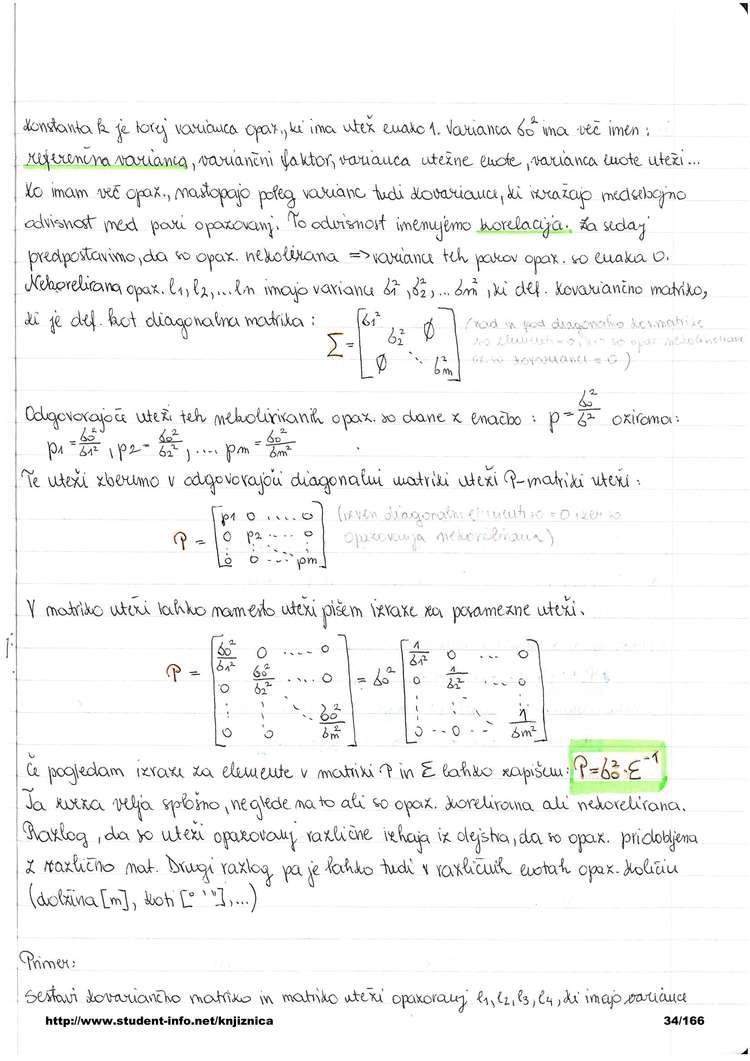 Konstanta k je torej varianca opaz., ki ima utež enako 1. Varianca σ₀² ima več imen :
referenčna varianca, variančni faktor, varianca utežne enote, varianca enote uteži...
Ko imam več opaz., nastopajo poleg varianc tudi kovariance, ki izražajo medsebojno
odvisnost med pari opazovanj. To odvisnost imenujemo korelacija. Za sedaj
predpostavimo, da so opaz. nekolirana => variance teh parov opaz. so enaka 0.
Nekorelirana opaz. l1, l2, ... ln imajo variance σ1², σ2², ... σm², ki def. kovariančno matriko,
ki je def. kot diagonalna matrika : Σ = [σ1² σ2² ∅ ∅ ⋱ σm²] (nad in pod diagonalo
so elementi = 0, so opaz nekorelirane
kovariance = 0)
Odgovorajoče uteži teh nekoliriranih opaz. so dane z enačbo : p = σ₀²/σ² oziroma:
p1 = σ₀²/σ1², p2 = σ₀²/σ2², .... pm = σ₀²/σm²
Te uteži zberemo v odgovorajoči diagonalni matriki uteži P-matriki uteži :
P = [p1 0 .... 0
0 p2 .... 0
0 0 .... pm] (izven diagonalni elementi so = 0 ker so
opazovanja nekorelirana)
V matriko uteži lahko namesto uteži pišem izraze za posamezne uteži.
P = [σ₀²/σ1² 0 .... 0
0 σ₀²/σ2² .... 0
0 0 σ₀²/σm²] = σ₀² [1/σ1² 0 ... 0
0 1/σ2² ... 0
0 .. 0 .. 1/σm²]
Če pogledam izraze za elemente v matriki P in Σ lahko zapišem : P = σ₀² · Σ⁻¹
Ta zveza velja splošno, ne glede na to ali so opaz. korelirana ali nekorelirana.
Razlog, da so uteži opazovanj različne izhaja iz dejstva, da so opaz. pridobljena
z različno nat. Drugi razlog pa je lahko tudi v različnih enotah opaz. količin
(dolžina [m], koti [° ' "], ...)
Primer:
Sestavi kovariančno matriko in matriko uteži opazovanj l1, l2, l3, l4, ki imajo variance
http://www.student-info.net/knjiznica 34/166